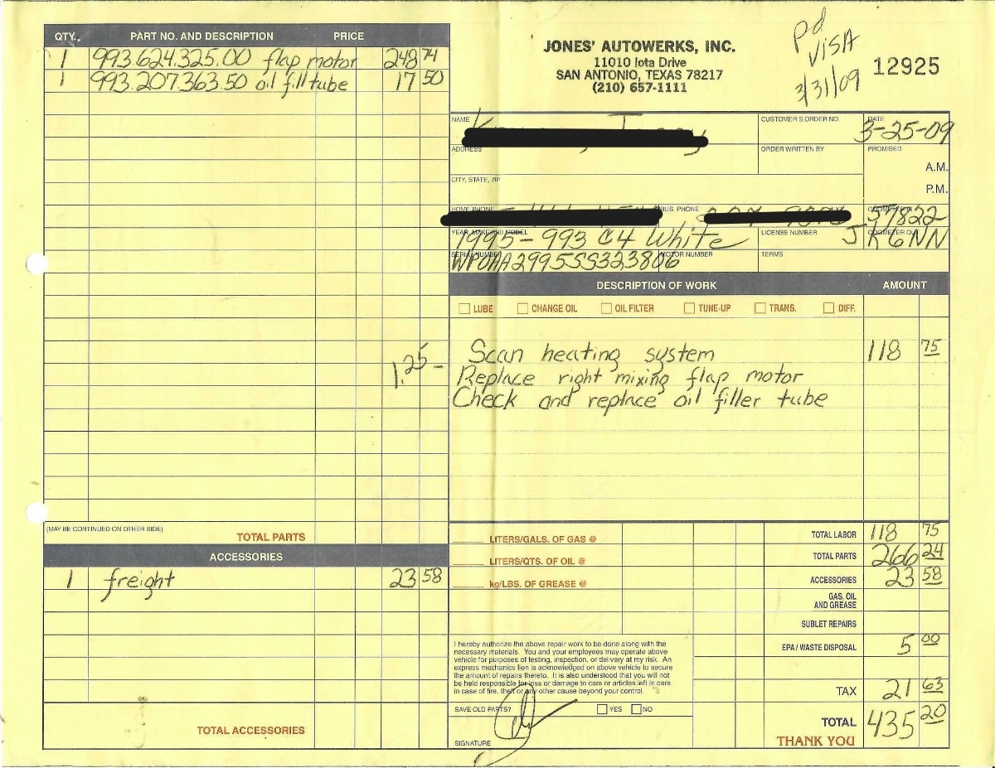 QTY. PART NO. AND DESCRIPTION PRICE
1 993.624.325.00 flap motor 248 74
1 993.207.363.50 oil fill tube 17 50
JONES' AUTOWERKS, INC.
11010 Iota Drive
SAN ANTONIO, TEXAS 78217
(210) 657-1111
pd
VISA
3/31/09
12925
NAME
CUSTOMER'S ORDER NO.
DATE
3-25-09
ADDRESS
ORDER WRITTEN BY
PROMISED
A.M.
P.M.
CITY, STATE, ZIP
HOME PHONE
BUS. PHONE
57822
YEAR, MAKE AND MODEL
1995-993 C4 White
LICENSE NUMBER
JK6NN
SERIAL NUMBER
WP0AA2995SS323806
MOTOR NUMBER
TERMS
DESCRIPTION OF WORK AMOUNT
LUBE CHANGE OIL OIL FILTER TUNE-UP TRANS. DIFF.
1.25 - Scan heating system 118 75
Replace right mixing flap motor
Check and replace oil filler tube
(MAY BE CONTINUED ON OTHER SIDE)
TOTAL PARTS
ACCESSORIES
1 freight 23 58
TOTAL ACCESSORIES
LITERS/GALS. OF GAS @
LITERS/QTS. OF OIL @
kg/LBS. OF GREASE @
TOTAL LABOR 118 75
TOTAL PARTS 266 24
ACCESSORIES 23 58
GAS, OIL
AND GREASE
SUBLET REPAIRS
EPA / WASTE DISPOSAL 5 00
TAX 21 63
TOTAL 435 20
THANK YOU
I hereby authorize the above repair work to be done along with the
necessary materials. You and your employees may operate above
vehicle for purposes of testing, inspection, or delivery at my risk. An
express mechanics lien is acknowledged on above vehicle to secure
the amount of repairs thereto. It is also understood that you will not
be held responsible for loss or damage to cars or articles left in cars
in case of fire, theft or any other cause beyond your control.
SAVE OLD PARTS? YES NO
SIGNATURE